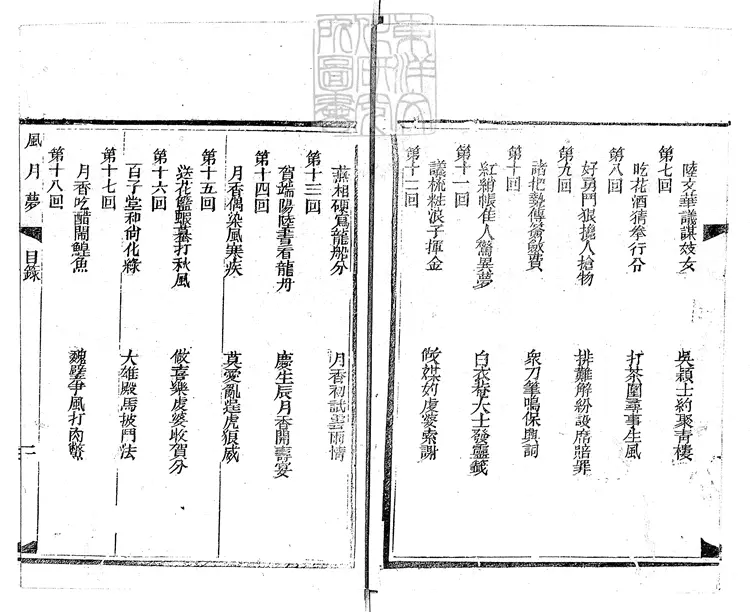 陸文華議謀妓女　吳穎士約聚青樓
第七回
吃花酒猜拳行令　打茶圍尋事生風
第八回
好勇鬥狠擾人搶物　排難解紛設席賠罪
第九回
諸把勢傳簽斂費　眾刀筆鳴保興詞
第十回
紅綃帳佳人驚異夢　白衣菴大士發靈籤
第十一回
議梳粧浪子揮金　做媒妁虔婆索謝
第十二回
相硬寫龍船分　月香初試雲雨情
第十三回
賀端陽陸書看龍舟　慶生辰月香開壽宴
第十四回
月香偶染風寒疾　莫愛亂逞虎狼威
第十五回
送花籃蝦蟇打秋風　做喜樂虔婆收賀分
第十六回
百子堂和尚化緣　大雄殿馬披鬥法
第十七回
月香吃醋鬧鰉魚　魏璧爭風打肉鱉
第十八回
風月夢　目錄　二